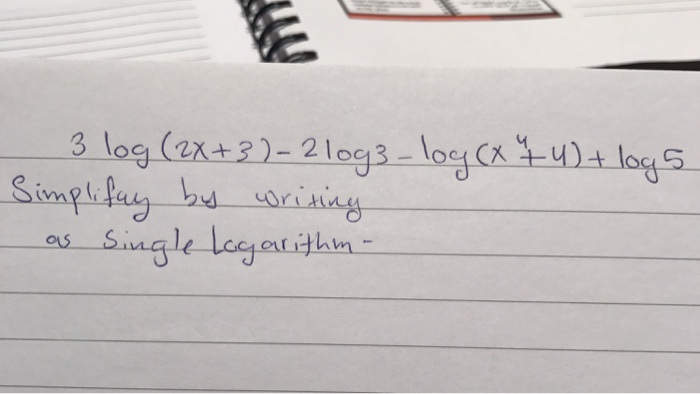 3 log (2x+3) - 2log3 - log(x⁴+4) + log5
Simplifay by writing
as single Logarithm -